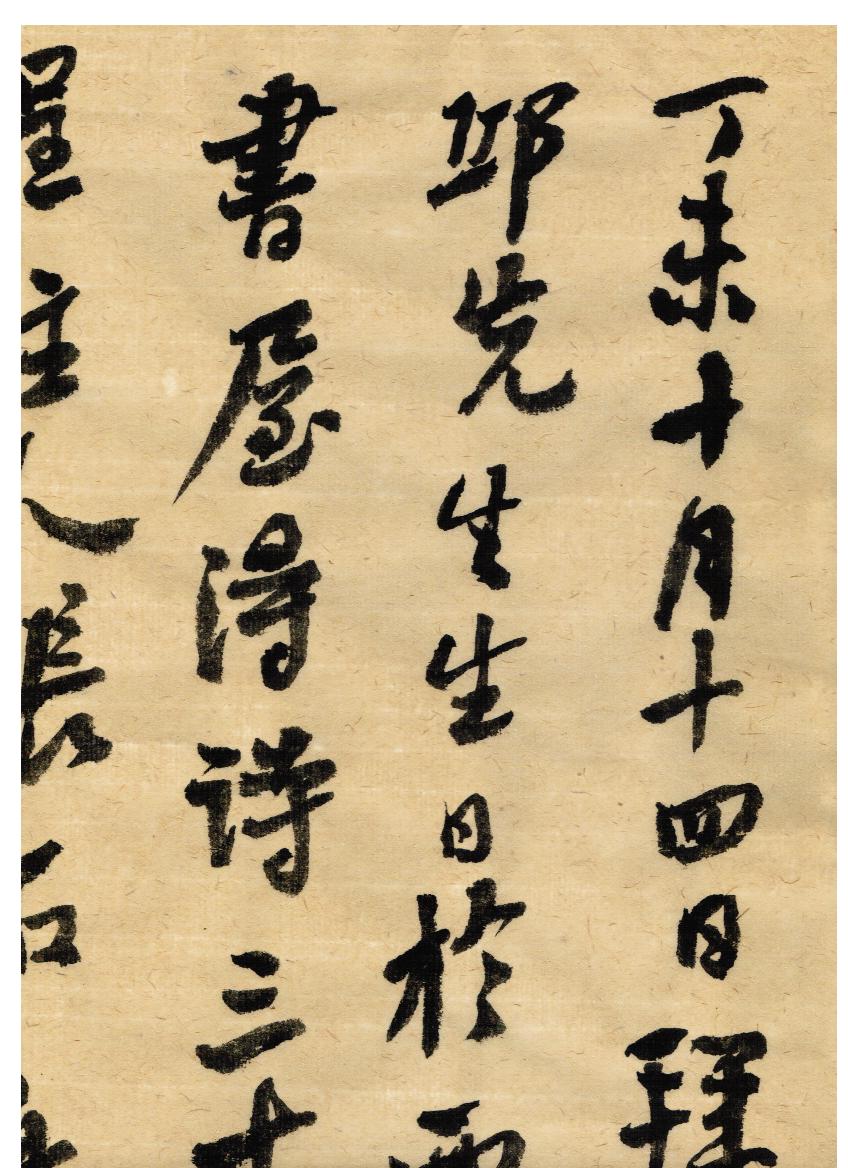 丁未十月十四日
邱先生生日於
書屋得詩三
主人長